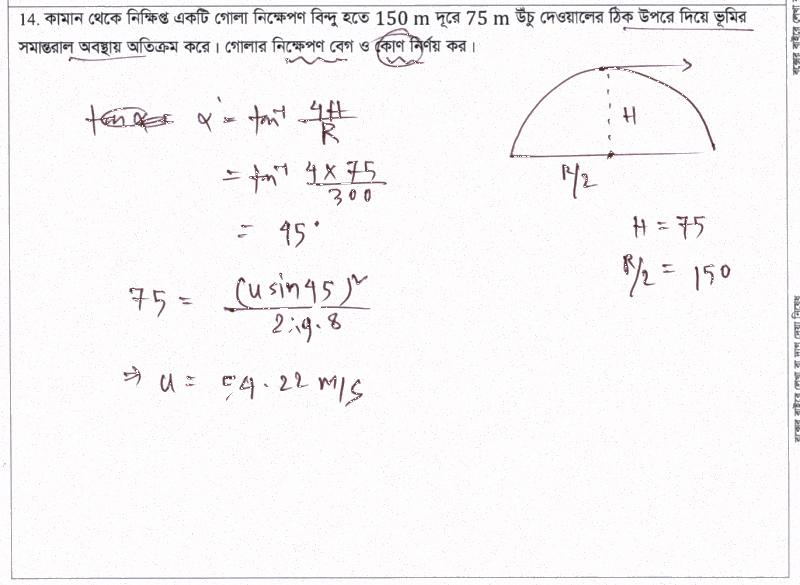 14. কামান থেকে নিক্ষিপ্ত একটি গোলা নিক্ষেপণ বিন্দু হতে 150 m দূরে 75 m উঁচু দেওয়ালের ঠিক উপরে দিয়ে ভূমির
সমান্তরাল অবস্থায় অতিক্রম করে। গোলার নিক্ষেপণ বেগ ও কোণ নির্ণয় কর।
α = tan⁻¹ 4H/R
= tan⁻¹ 4 × 75/300
= 45°
75 = (u sin 45)²/2×9.8
⇒ u = 54.22 m/s
H
R/2
H = 75
R/2 = 150